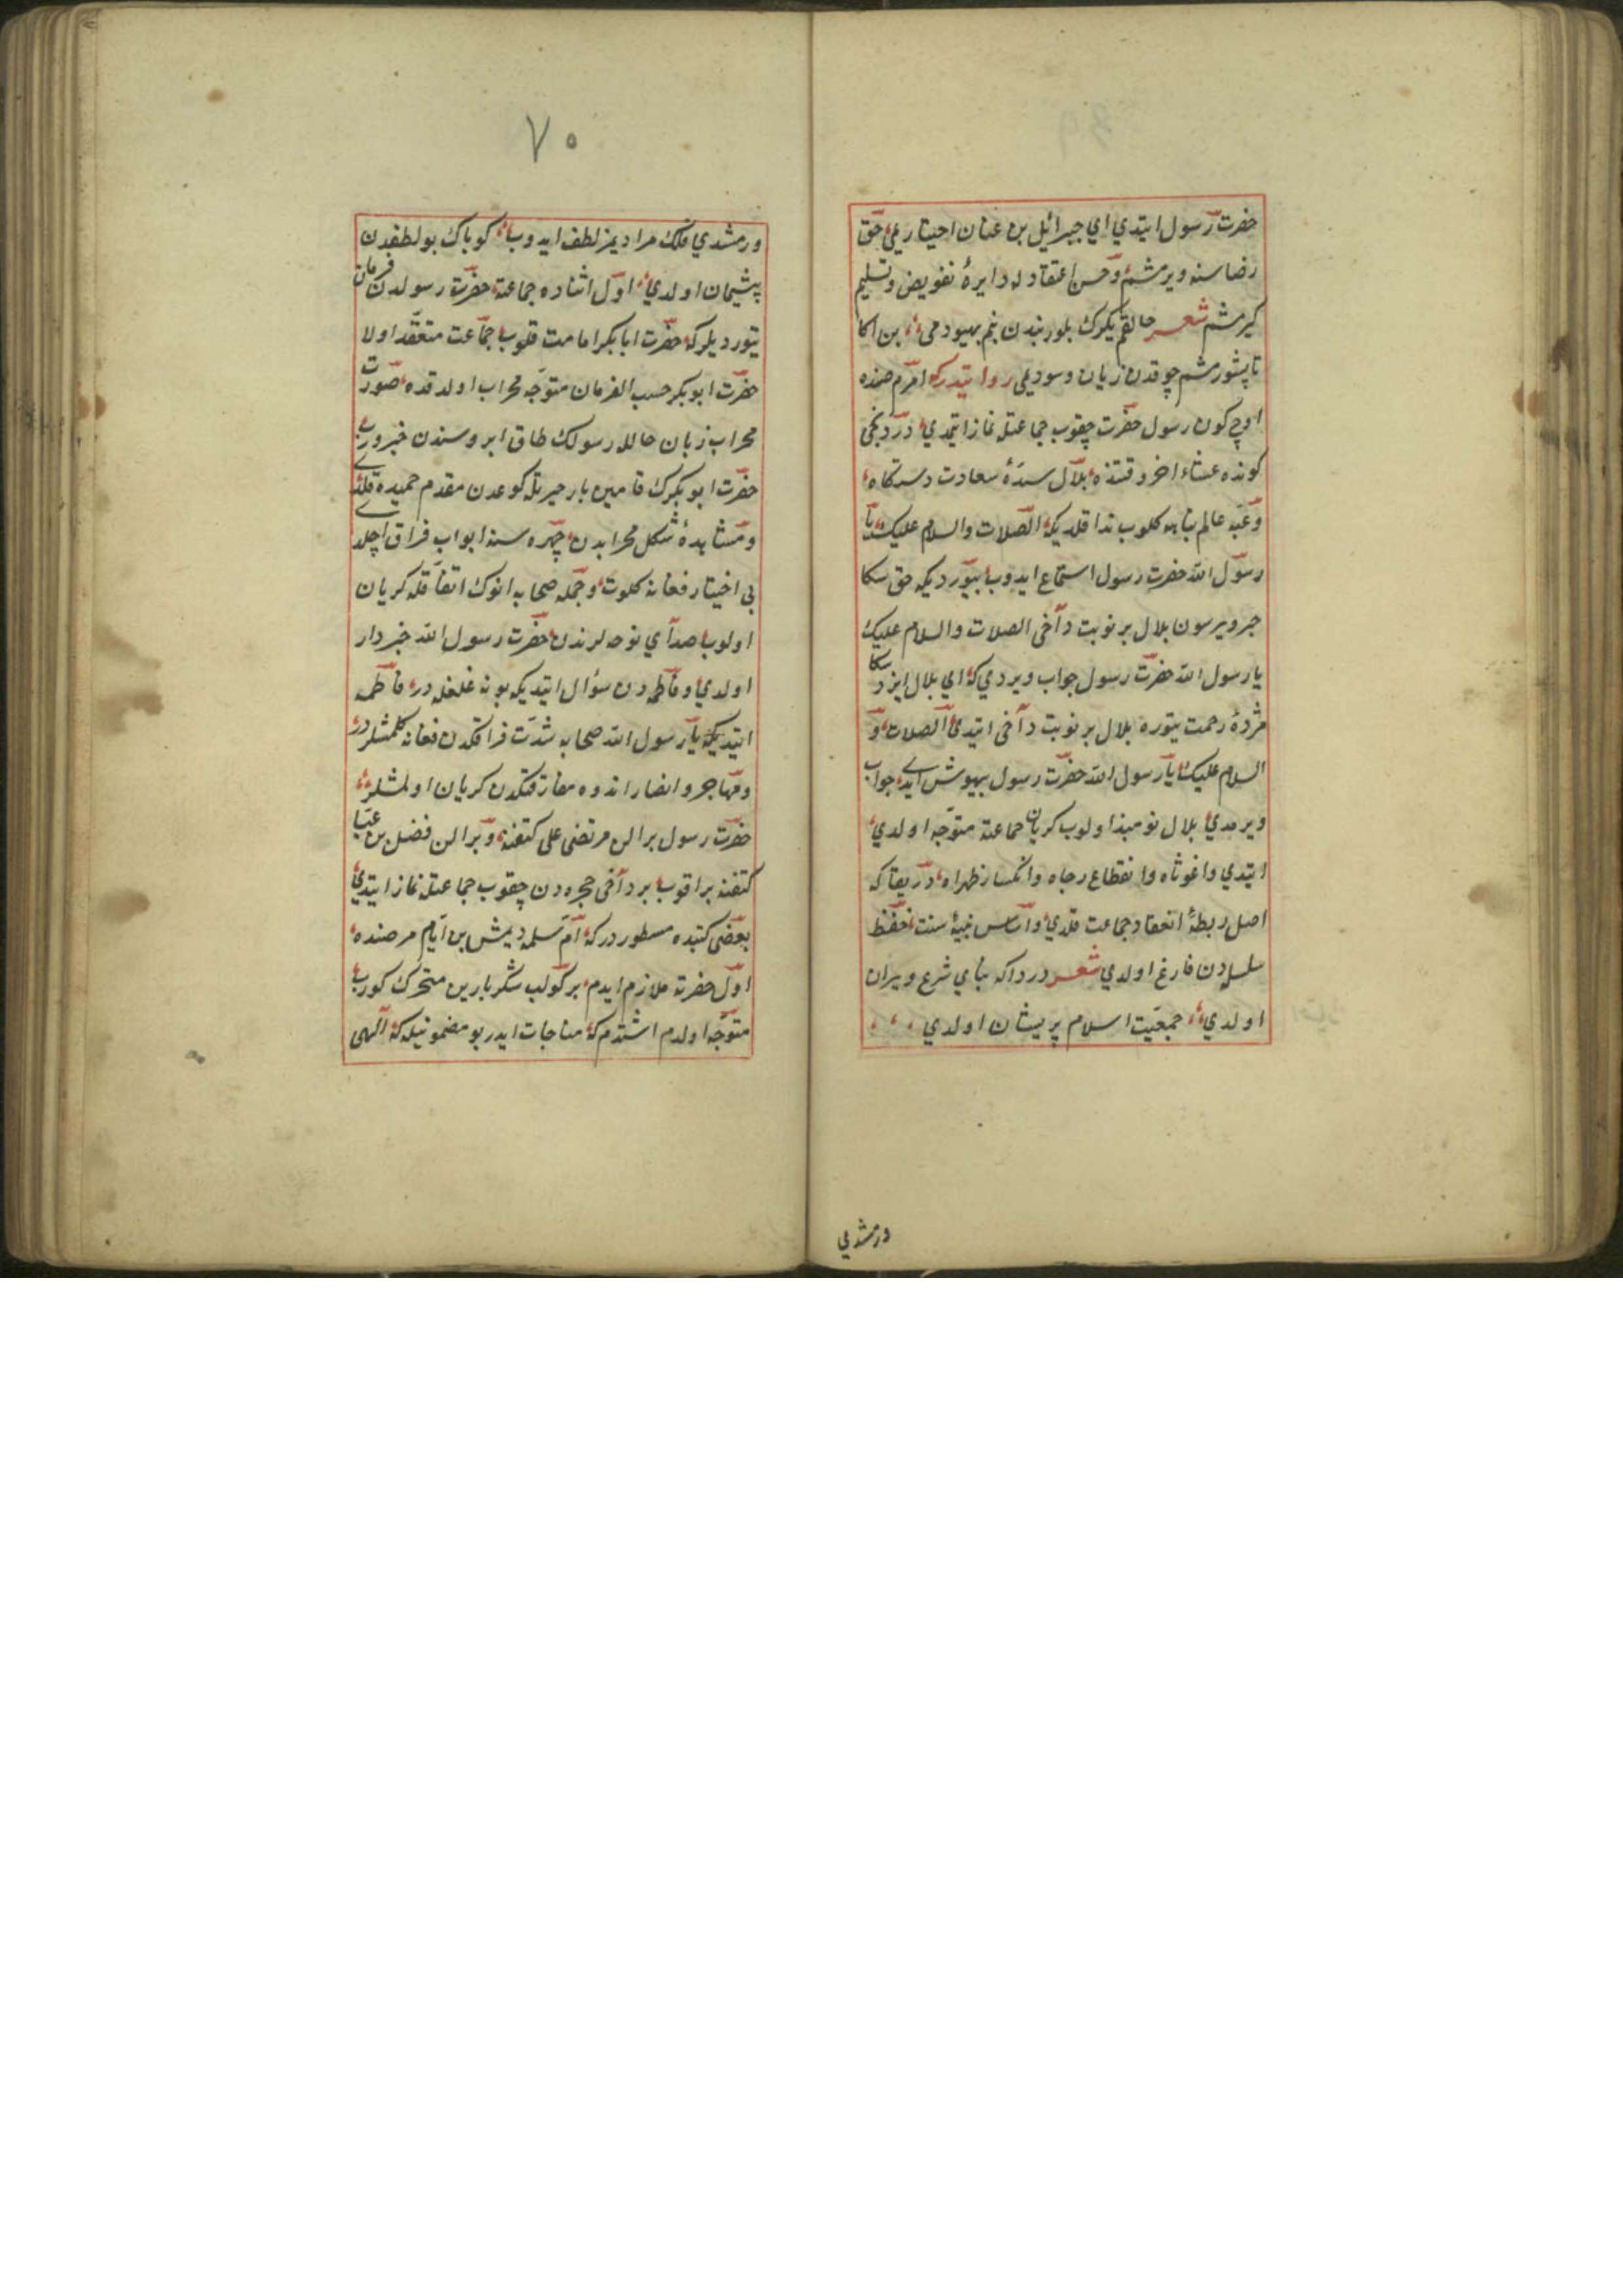 حضرت رسول ایتدي اي جبرائیل بن عنان احیتاریمي حق
رضاسنه ویرمشم وحسن اعتقادله دایرهٔ تفویض وتسلیم
کیرمشم شعر خالقم یکرك بلور بندن بنم بهبودمي بن اکا
تاپشورمشم چوقدن زیان وسودیمي روایتدرکه امرّم صمنده
اوچ کون رسول حضرت چقوب جماعتله نماز ایتمدي دردنجي
کونده عشاء اخر وقتنده بلال سدّهٔ سعادت دستکاه
وعتبه عالم پناهه کلوب ندا قلدیکه الصّلات والسلام علیك یا
رسول الله حضرت رسول استماع ایدوب بیوردیکه حق سکا
خیر ویرسون بلال بر نوبت دآخی الصلات والسلام علیك
یا رسول الله حضرت رسول جواب ویردي که اي بلال ایزد سکا
مژدهٔ رحمت یتوره بلال بر نوبت دآخی ایتدي الصلات و
السلام علیك یا رسول الله حضرت رسول بیهوش ایدي جواب
ویرمدي بلال نومیذ اولوب کریان جماعته متوجّه اولدي
ایتدي واغوثاه وانقطاع رجاه وانکسار ظهراه دریغاکه
اصل ربطهٔ انعقاد جماعت قلدي واساس بنیهٔ سنت حفظ
سلسله دن فارغ اولدي شعر درداکه بناي شرع ویران
اولدي جمعیّت اسلام پریشان اولدي
ورمشدي
٧٠
ورمشدي فلك مرادیمز لطف ایدوب کویاك بو لطفدن
پشیمان اولدي اول اثناده جماعته حضرت رسولدن فرمان
یتوردیلرکه حضرت ابابکر امامت قلوب جماعت متعقّد اولا
حضرت ابوبکر حسب الفرمان متوجّه محراب اولدقده صورت
محراب زبان حالله رسولك طاق ابروسندن خبر وروب
حضرت ابوبکرك قامتین بار حیرتله کوعدن مقدم خمیده قلدي
ومشاهدهٔ شکل محرابدن چهره سنه ابواب فراق اچلدي
بی اختیار فغانه کلوت وجمله صحابه انوك اتفاقله کریان
اولوب صداي نوحه لرندن حضرت رسول الله خبردار
اولدي وفاطمه دن سؤال ایتدیکه بو نه غلغله در فاطمه
ایتدیکه یا رسول الله صحابه شدّت فراقکدن فغانه کلمشلردر
ومهاجر وانصار اندوه مفارقتکدن کریان اولمشلر
حضرت رسول بر الن مرتضی علی کتفنه وبر الن فضل بن عبّا
کتفنه براقوب بر دآخی حجره دن چقوب جماعتله نماز ایتدي
بعضی کتبده مسطور درکه امّ سلمه دیمش بن ایّام مرضنده
اول حضرته ملازم ایدم بر کون لب شکربارین متحرك کوروب
متوجّه اولدم اشتدم که مناجات ایدر بو مضمونیله که الهی